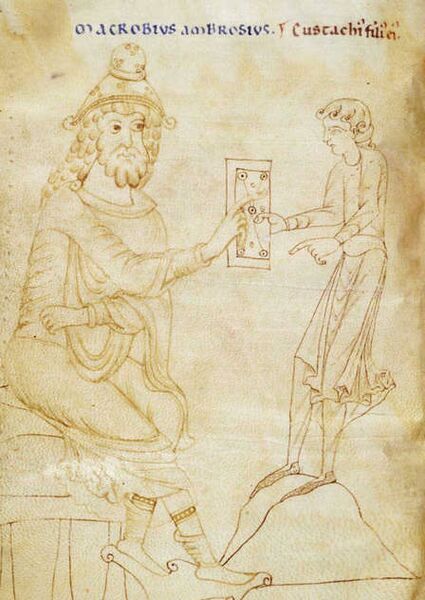 MACROBIUS AMBROSIUS. ⁊ Eustachi᾿ fili᾿ ei᾿.